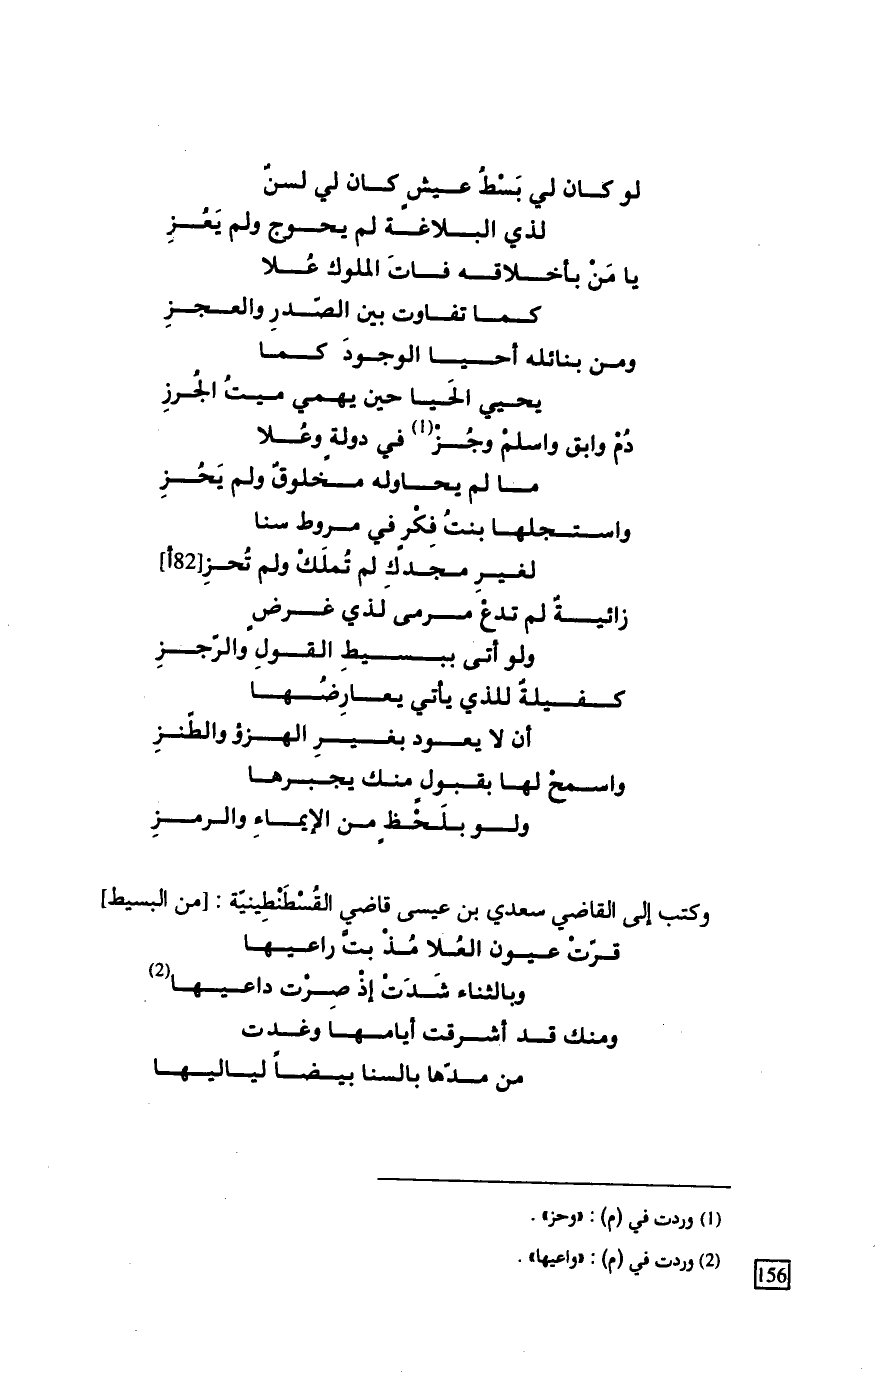 لو كان لي بَسْطُ عيشٍ كان لي لسنٌ
لذي البلاغة لم يحوج ولم يَعُزِ
يا مَنْ بأخلاقه فاتَ الملوك عُلا
كما تفاوت بين الصّدرِ والعجزِ
ومن بنائله أحيا الوجودَ كما
يحيي الحَيا حين يهمي ميتُ الجُرزِ
دُمْ وابق واسلمْ وجُزْ(1) في دولةٍ وعُلا
ما لم يحاوله مخلوقٌ ولم يَحُزِ
واستجلها بنتُ فِكْرٍ في مروط سنا
لغيرِ مجدكِ لم تُملَكْ ولم تُحزِ[82أ]
زائيةٌ لم تدعْ مرمى لذي غرضٍ
ولو أتى ببسيطِ القولِ والرّجزِ
كفيلةٌ للذي يأتي يعارِضُها
أن لا يعود بغيرِ الهزؤ والطَّنزِ
واسمحْ لها بقبولٍ منك يجبرها
ولو بلَحْظٍ من الإيماءِ والرمزِ
وكتب إلى القاضي سعدي بن عيسى قاضي القُسْطَنْطِينيّة : [من البسيط]
قرّتْ عيون العُلا مُذْ بتَّ راعيها
وبالثناء شَدَتْ إذْ صِرْت داعيها(2)
ومنك قد أشرقت أيامها وغدت
من مدّها بالسنا بيضاً لياليها
(1) وردت في (م) : «وحز» .
(2) وردت في (م) : «واعيها» .
156